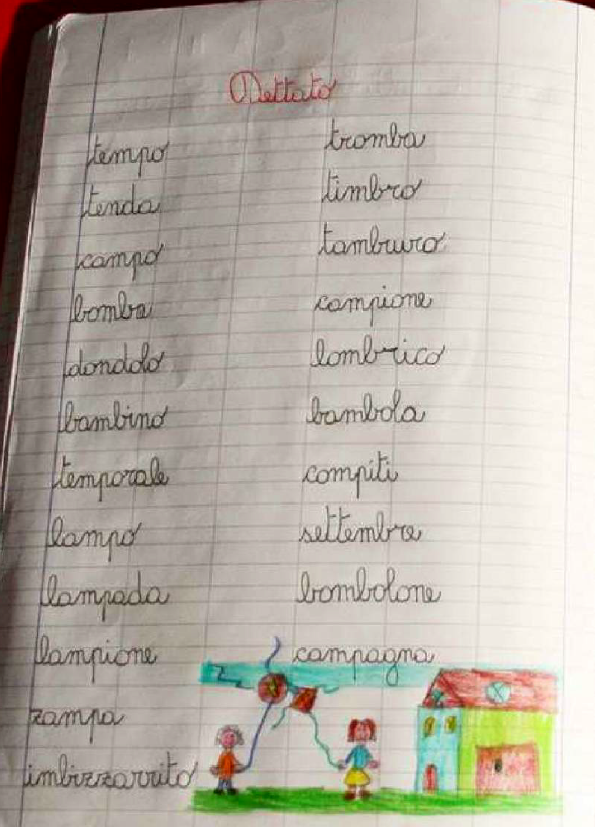 Dettato
tempo
tenda
campo
bomba
dondolo
bambino
temporale
lampo
lampada
lampione
zampa
imbizzarrito
tromba
timbro
tamburo
campione
lombrico
bambola
compiti
settembre
bombolone
campagna